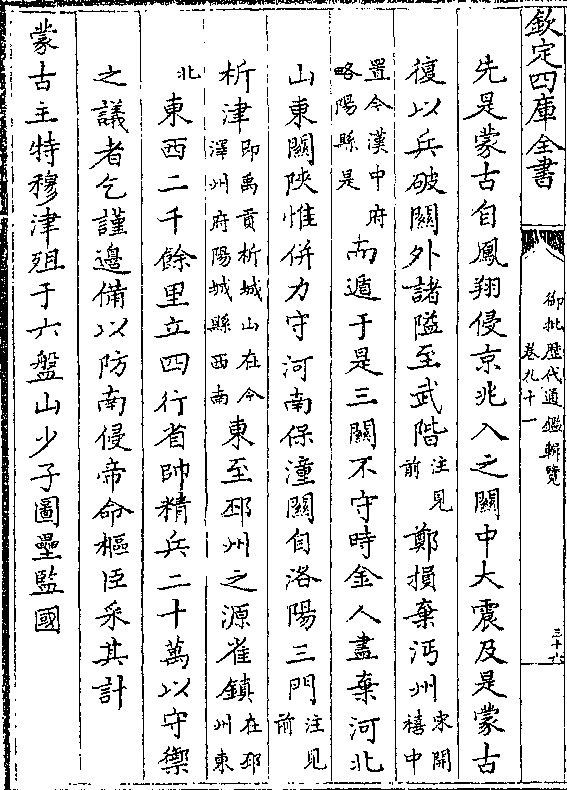 欽定四庫全書
御批歷代通鑑輯覽
卷九十一
三十六
先是蒙古自鳳翔侵京兆入之關中大震及是蒙古
復以兵破關外諸隘至武階注見前鄭損棄沔州宋開禧中
置今漢中府略陽縣是而遁于是三關不守時金人盡棄河北
山東關陝惟併力守河南保潼關自洛陽三門注見前
析津即禹貢析城山在今澤州府陽城縣西南東至邳州之源雀鎮在邳州東
北東西二千餘里立四行省帥精兵二十萬以守禦
之議者乞謹邊備以防南侵帝命樞臣采其計
蒙古主特穆津殂于六盤山少子圖壘監國